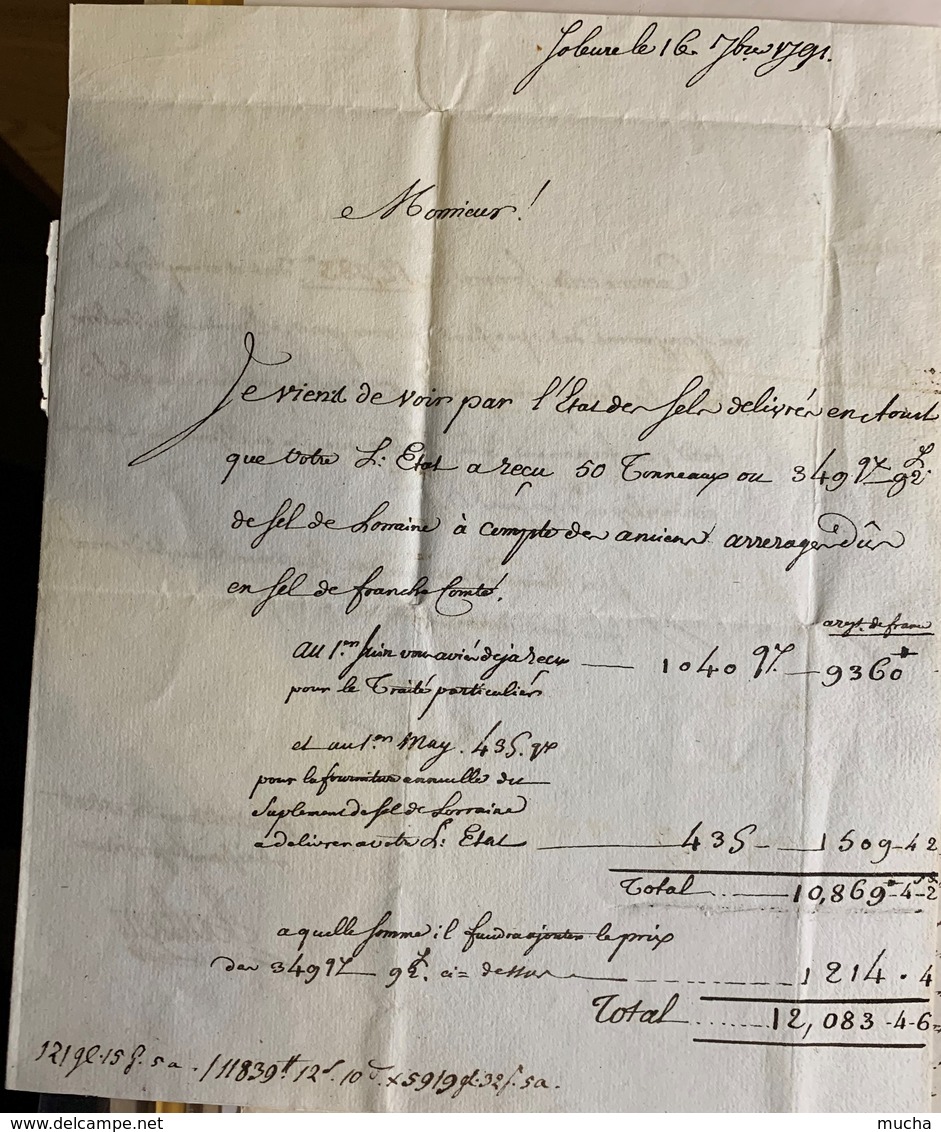 Soleure le 16. 7bre 1791.
Monsieur!
Je viens de voir par l'Etat des Sels delivrés en Aoust
que Votre L: Etat a reçu 50 Tonneaux ou 349 qx 92 L
de Sel de Lorraine à compte des anciens arrerages dûs
en Sel de franche Comté.
argt. de france
au 1.er Juin vous aviés deja reçu — 1040 qx. — 9360 ₶
pour le Traité particulier
et au 1.er May. 435. qx
pour la fourniture annuelle du
Suplement de Sel de Lorraine
a delivrer a votre L: Etat — 435 — 1509-4 2
Total — 10,869 ₶-4-2
a quelle Somme il faudra ajouter le prix
des 349 qx 92 L. ci = dessus — 1214 . 4
Total ...... 12,083-4-6
121 gl. 15 ſ. 5 a. / 11839 ₶ 12 s. 10 d. x 5919 gl. 32 ſ. 5 a.
mucha